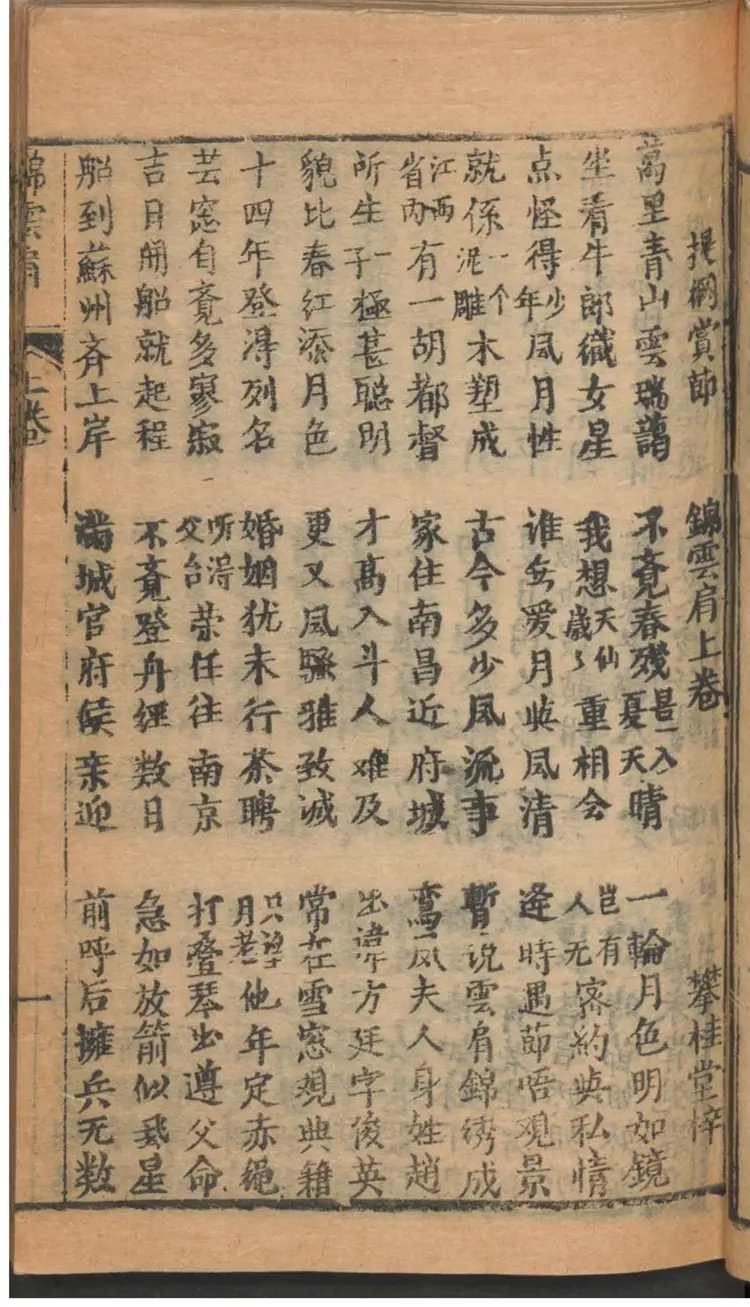 提綱賞節 錦雲肩上卷 攀桂堂梓
萬里青山雲瑞藹 不覔春残又是一入夏天晴 一輪月色明如鏡
坐看牛郎織女星 我想天仙歲々重相会 岂有人无密約與私情
点怪得少年風月性 谁無爱月與風清 逢時遇節唔观景
就係一个泥雕木塑成 古今多少風流事 暫说雲肩錦绣成
江西省内有一胡都督 家住南昌近府城 鸾凤夫人身姓趙
所生一子極甚聪明 才高入斗人难及 出諱方廷字俊英
貌比春红添月色 更又風騷雅致诚 常在雪窓覌典籍
十四年登得列名 婚姻犹未行茶聘 只望月老他年定赤绳
芸窓自覔多寥寂 听得父台荣任往南京 打叠琴出遵父命
吉日開船就起程 不覔登舟經数日 急如放箭似飛星
船到蘇州斉上岸 满城官府侯亲迎 前呼后擁兵无数
錦雲肩 上卷 一